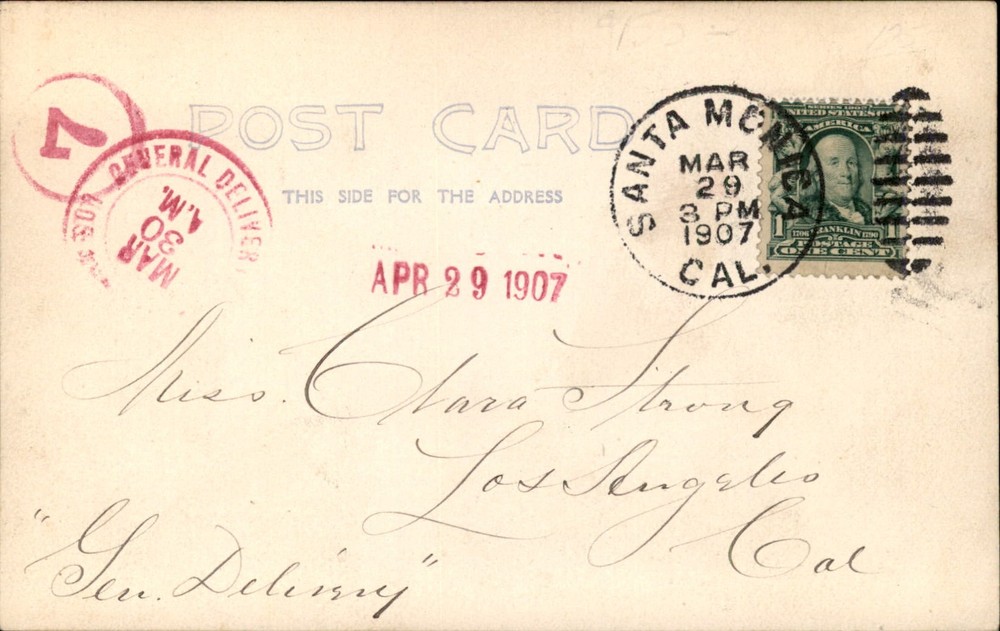 POST CARD
THIS SIDE FOR THE ADDRESS
7
GENERAL DELIVERY
MAR
30
A.M.
APR 29 1907
SANTA MONICA
MAR
29
3 PM
1907
CAL.
SERIES 1902
UNITED STATES OF
AMERICA
1706 FRANKLIN 1790
1 POSTAGE 1
ONE CENT
Miss. Clara Strong
Los Angeles
Cal
"Gen. Delivery"